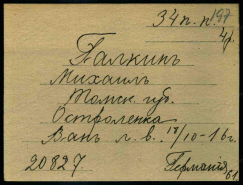 34 п.п. 197
Палкинъ
Михаилъ
Томск. губ.
Остроленка
Ванъ л. в. 18/10-16 г.
20827. Германія
61